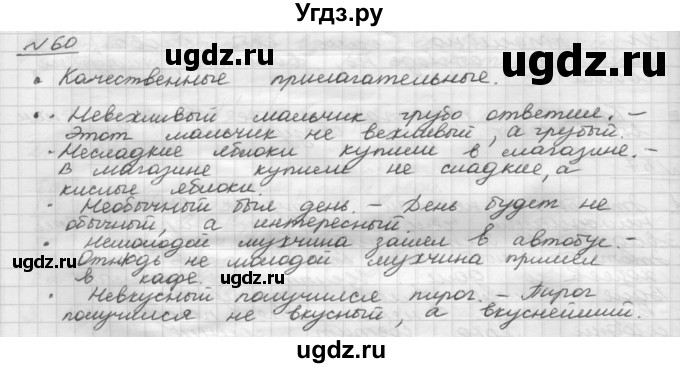 Угдз.ру
№60
• Качественные прилагательные.
ugdz.ru ugdz.ru
• • Невежливый мальчик грубо ответил. –
Этот мальчик не вежливый, а грубый.
• Несладкие яблоки купили в магазине. –
В магазине купили не сладкие, а
кислые яблоки.
ugdz.ru
• Необычный был день. – День будет не
обычный, а интересный.
• Немолодой мужчина зашел в автобус. –
Отнюдь не молодой мужчина пришел
в кафе.
ugdz.ru ugdz.ru
• Невкусный получился пирог. – Пирог
получился не вкусный, а вкуснейший.
ugdz.ru